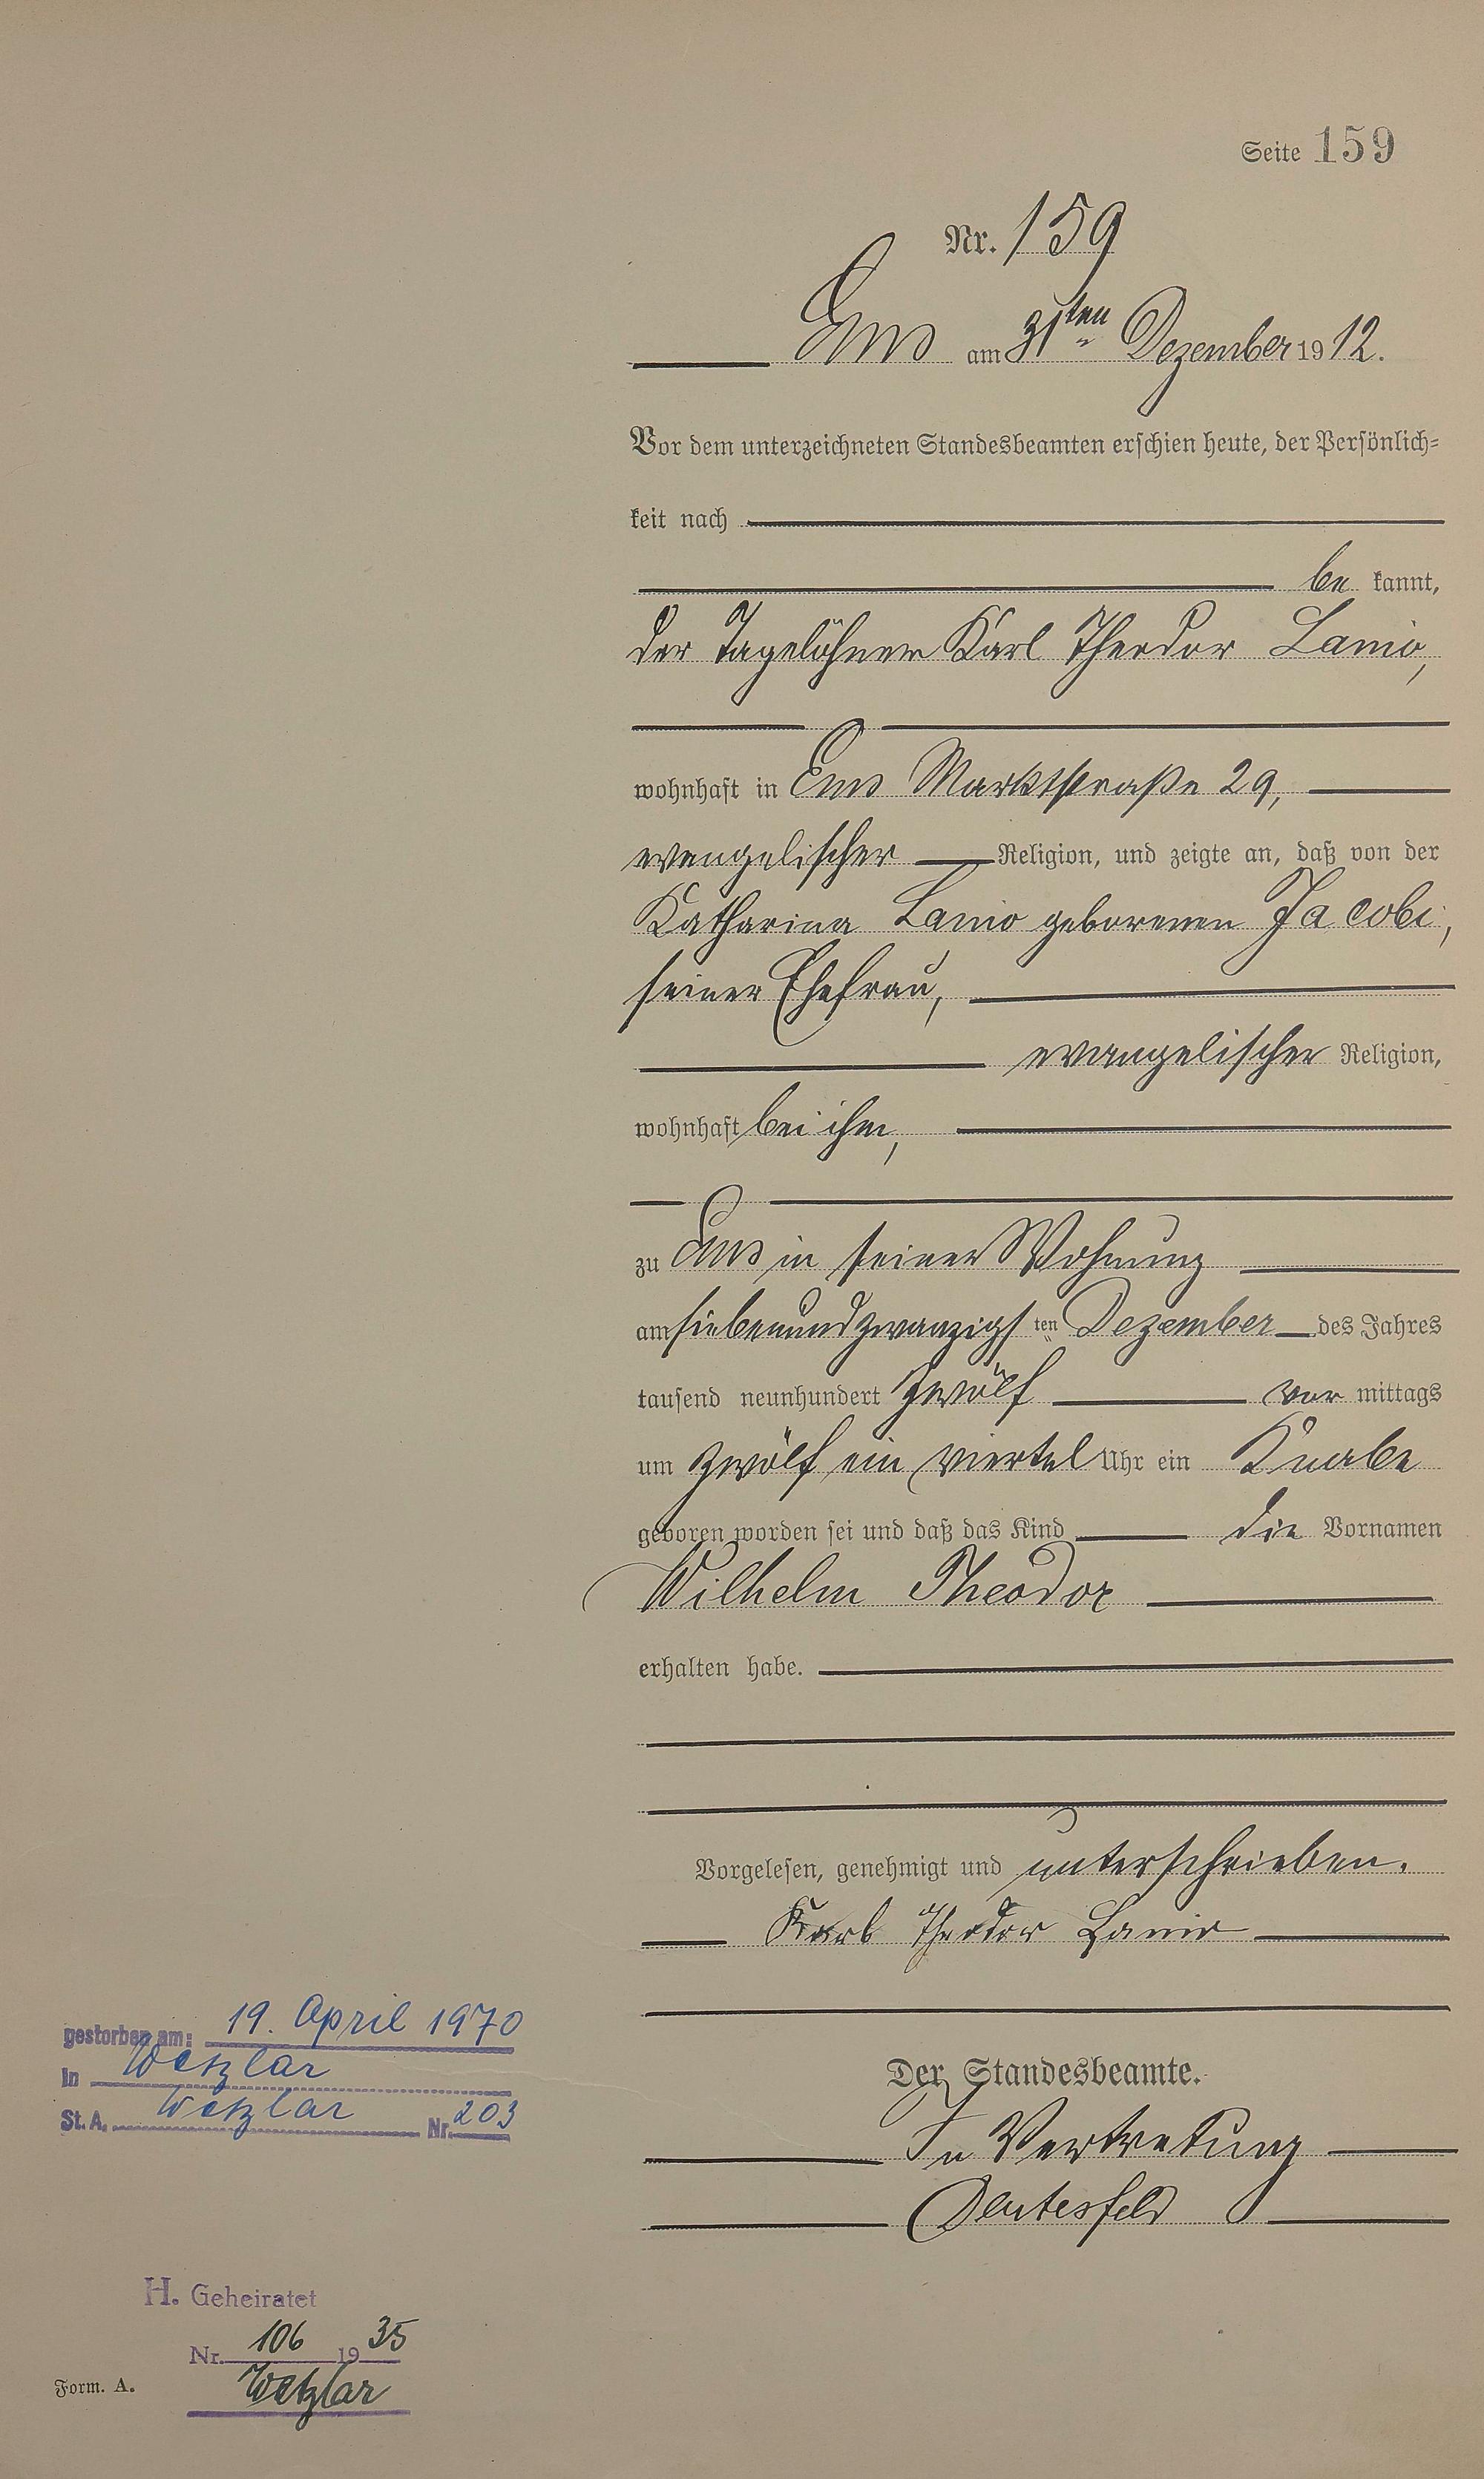 Seite 159
Nr. 159
Ems am 31ten Dezember 1912.
Vor dem unterzeichneten Standesbeamten erschien heute, der Persönlich=
keit nach
be kannt,
der Tagelöhner Karl Theodor Lanio,
wohnhaft in Ems Marktstraße 29,
evangelischer Religion, und zeigte an, daß von der
Katharina Lanio geborenen Jacobi,
seiner Ehefrau,
evangelischer Religion,
wohnhaft bei ihm,
zu Ems in seiner Wohnung
am siebenundzwanzigsten Dezember des Jahres
tausend neunhundert zwölf vor mittags
um zwölf ein viertel Uhr ein Knabe
geboren worden sei und daß das Kind die Vornamen
Wilhelm Theodor
erhalten habe.
Vorgelesen, genehmigt und unterschrieben.
Karl Theodor Lanio
Der Standesbeamte.
In Vertretung
gestorben am: 19. April 1970
in Wetzlar
St. A. Wetzlar Nr. 203
H. Geheiratet
Nr. 106 1935
Wetzlar
Form. A.